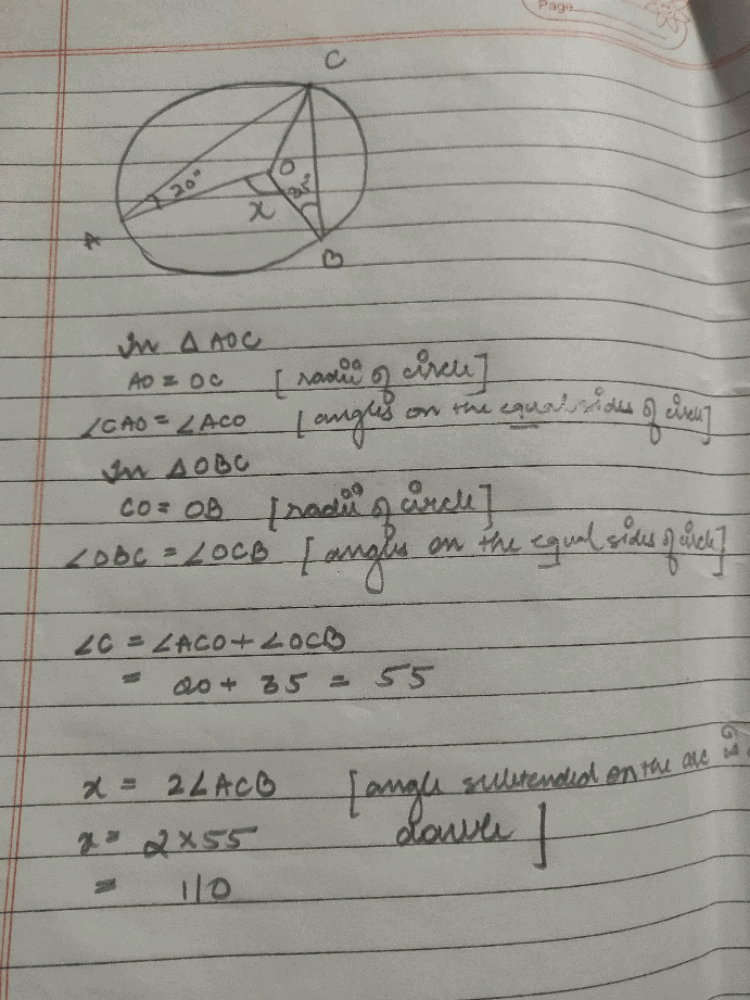 Page
C
20°
O
35°
x
A
B
In △ AOC
AO = OC [radii of circle]
∠CAO = ∠ACO [angles on the equal sides of circle]
In △OBC
CO = OB [radii of circle]
∠OBC = ∠OCB [angles on the equal sides of circle]
∠C = ∠ACO + ∠OCB
= 20 + 35 = 55
x = 2∠ACB [angle subtended on the arc is
x = 2×55 double]
= 110